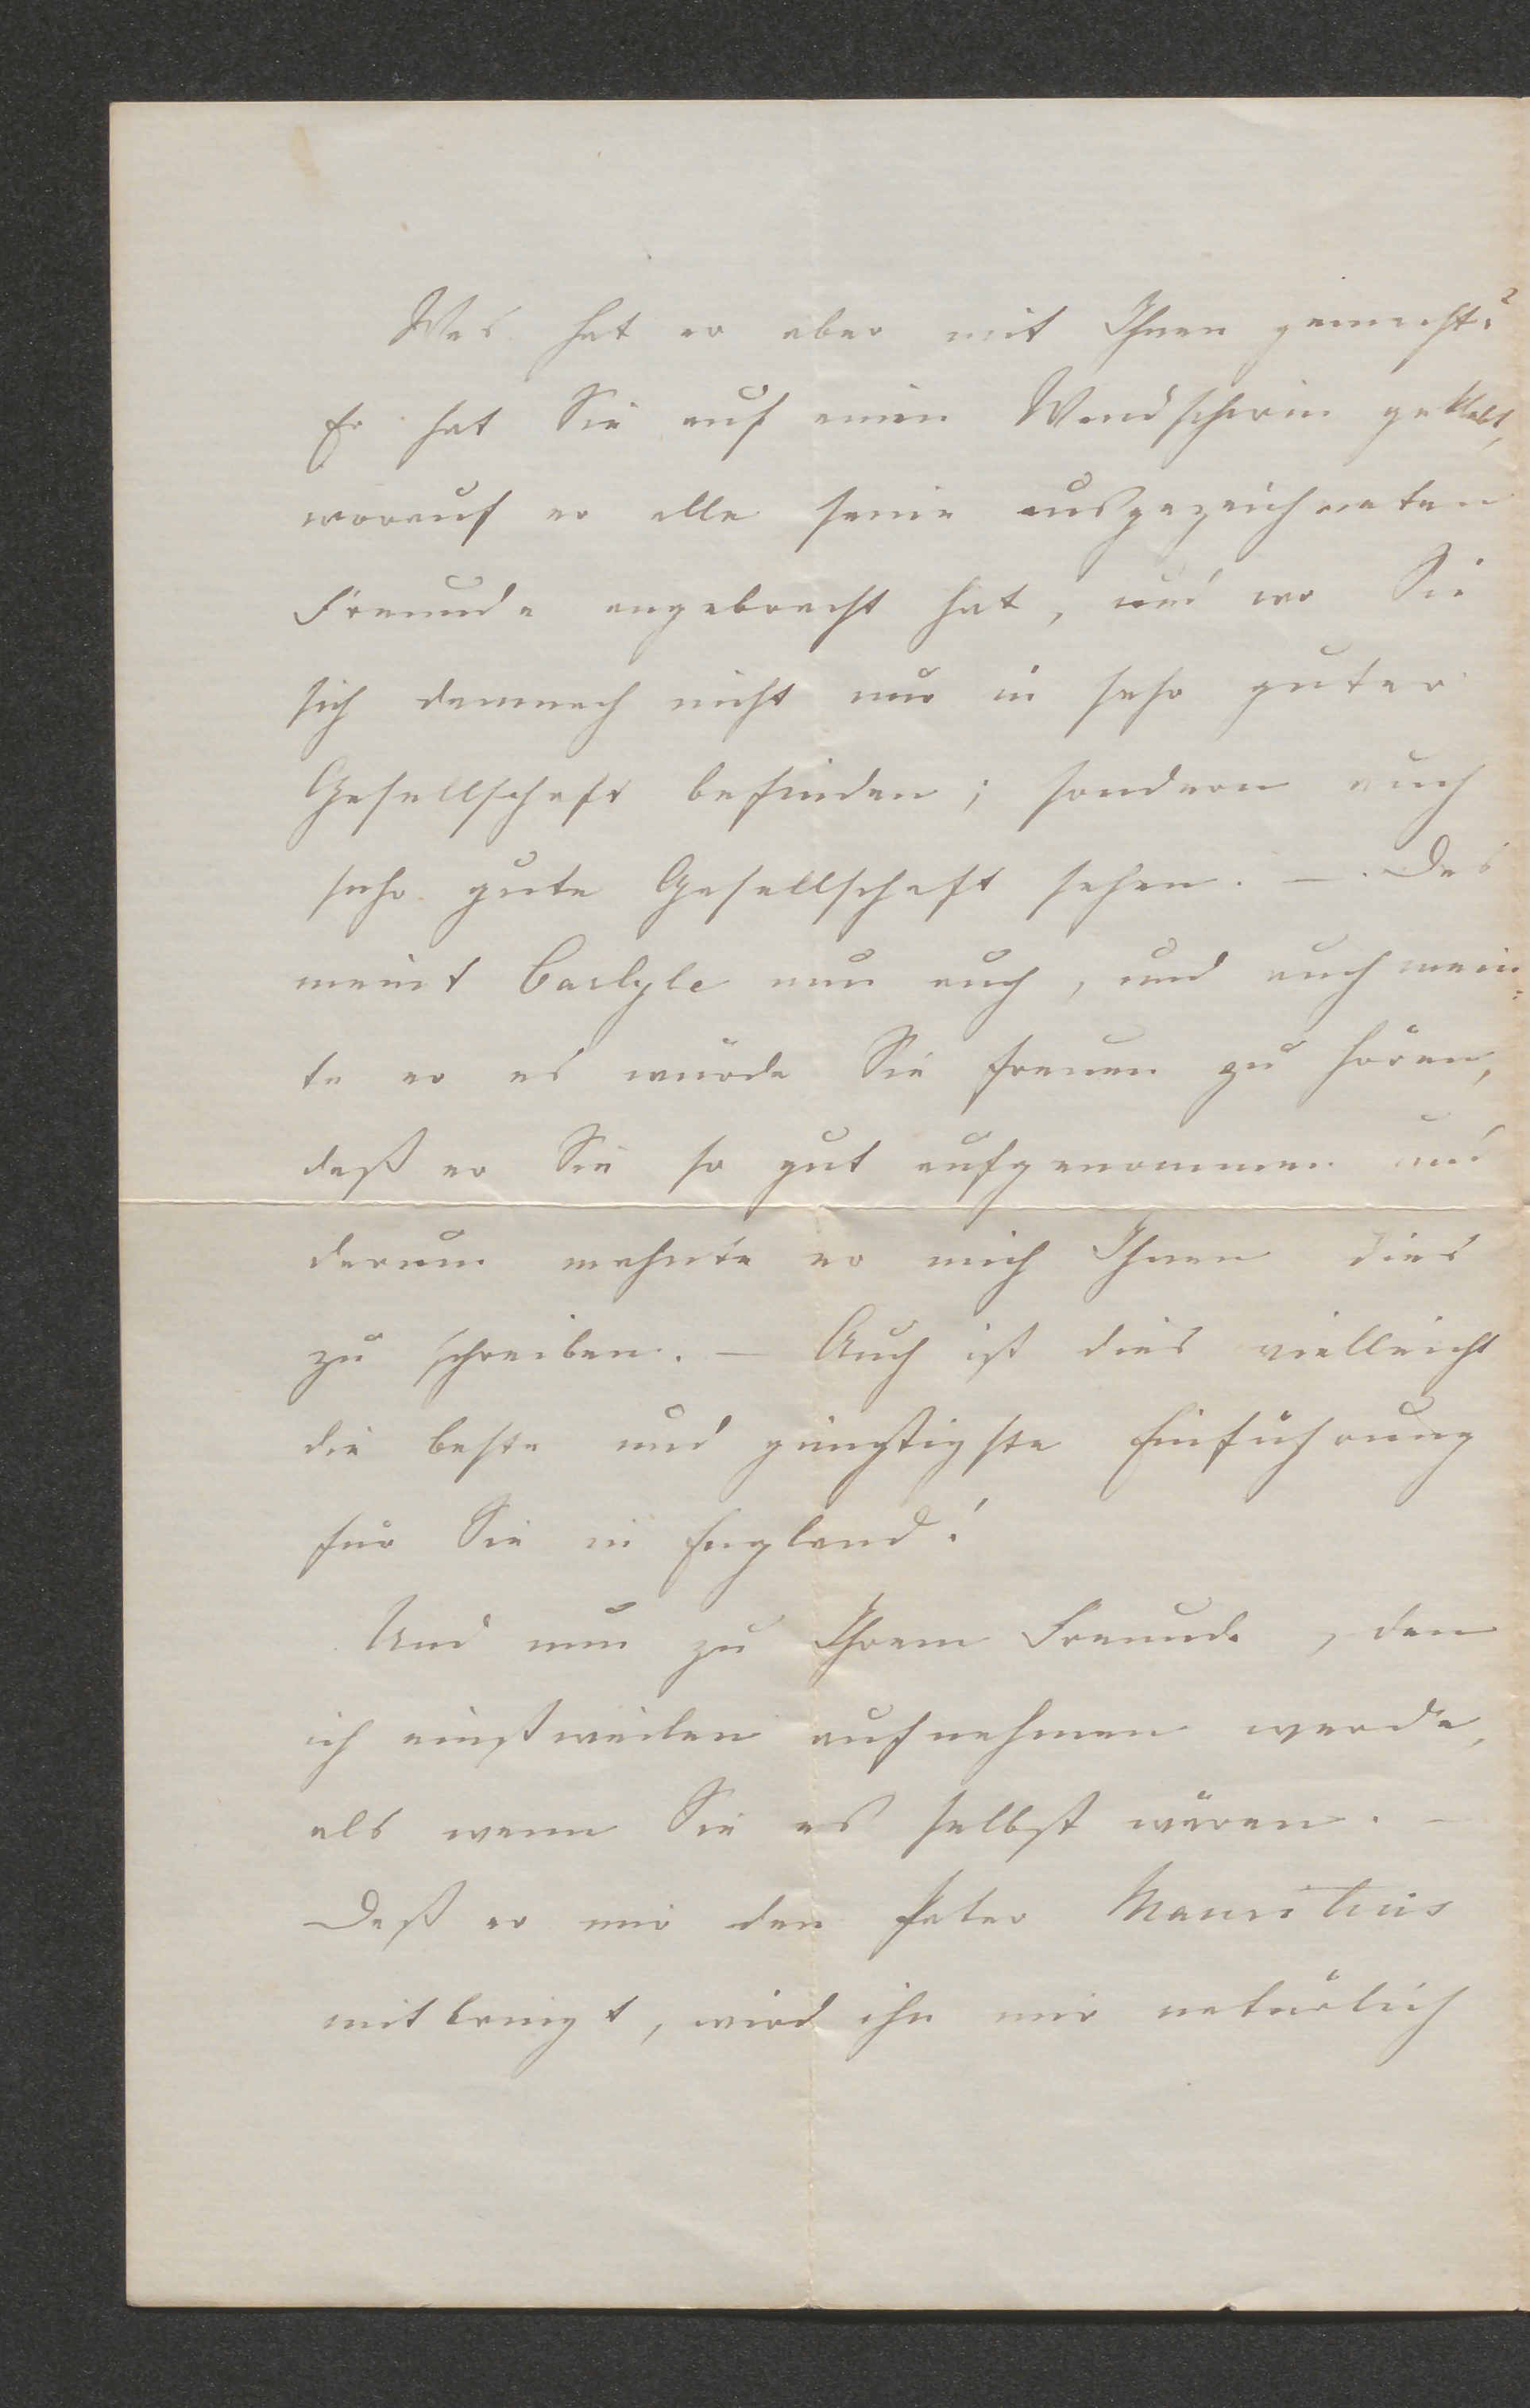 Was hat er aber mit Ihnen gemacht?
Er hat Sie auf einen Wandschirm geklebt,
worauf er alle seine ausgezeichneten
Freunde angebracht hat, und wo Sie
sich demnach nicht nur in sehr guter
Gesellschaft befinden; sondern auch
sehr gute Gesellschaft sehen. — Das
meint Carlyle nun auch, und auch mein=
te er es würde Sie freuen zu hören,
daß er Sie so gut aufgenommen und
darum mahnte er mich Ihnen dies
zu schreiben. — Auch ist dies vielleicht
die beste und günstigste Einführung
für Sie in England!
Und nun zu Ihrem Freunde, den
ich einstweilen aufnehmen werde,
als wenn Sie es selbst wären. —
Daß er mir den Pater Mauritius
mitbringt, wird ihn mir natürlich